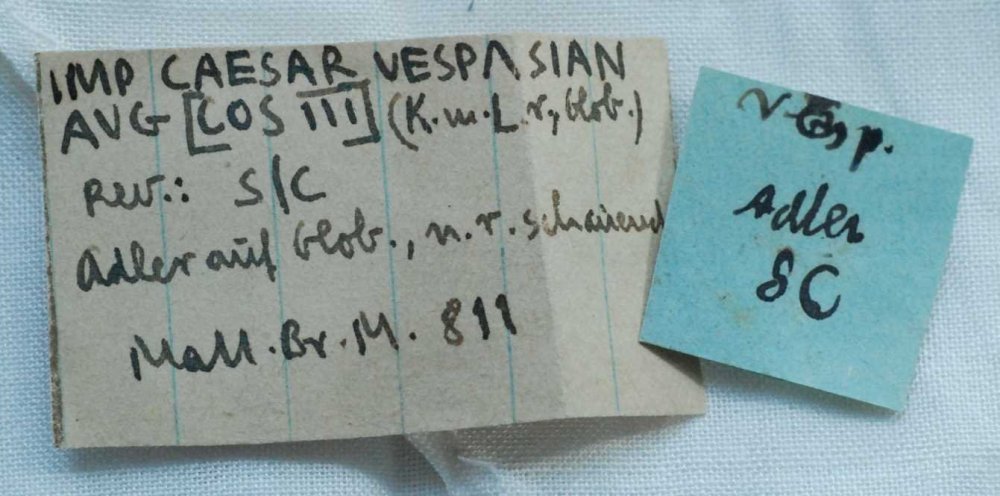 IMP CAESAR VESPASIAN
AVG [COS III] (K.m.L.r., Glob.)
Rev.: S/C
Adler auf Glob., n.r. schauend
Matt.Br.M. 811
Vesp.
Adler
SC